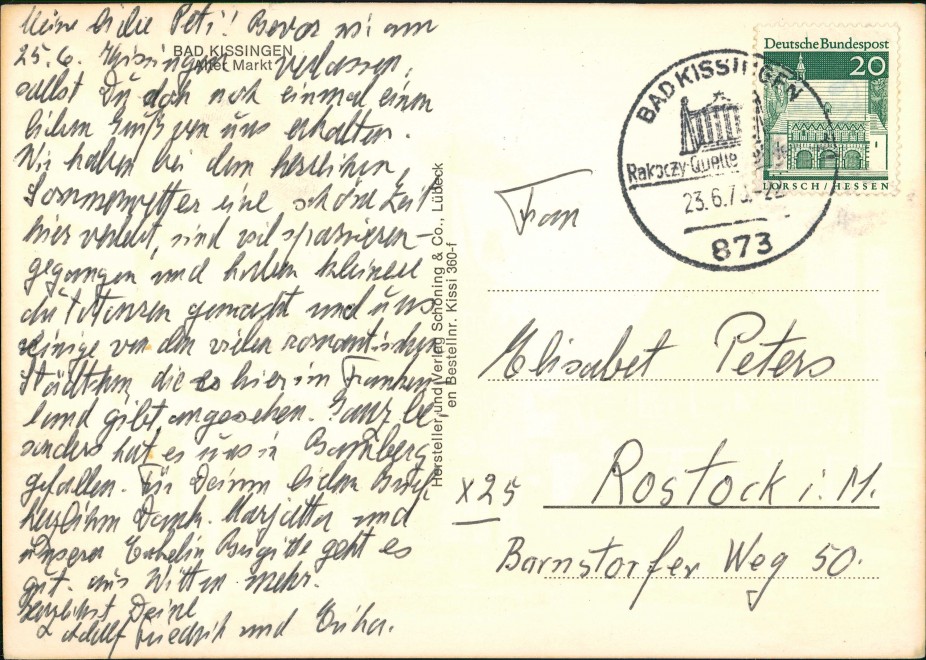 Meine liebe Peti! Bevor wir am
25.6. Kissingen verlassen,
sollst Du doch noch einmal einen
lieben Gruß von uns erhalten.
Wir haben bei dem herrlichen
Sommerwetter eine schöne Zeit
hier verlebt, sind viel spazieren-
gegangen und haben kleinere
Autotouren gemacht und uns
einige von den vielen romantischen
Städtchen, die es hier im Franken-
land gibt angesehen. Ganz be-
sonders hat es uns in Bamberg
gefallen. Für Deinen lieben Brief
herzlichen Dank. Marjatta und
unserer Enkelin Brigitte geht es
gut.
herzlichst Deine
Adolf Friedrich und Erika.
BAD KISSINGEN
Alter Markt
Hersteller und Verlag Schöning & Co., Lübeck
en Bestellnr. Kissi 360-f
Deutsche Bundespost
20
LORSCH/HESSEN
BAD KISSINGEN
Rakoczy-Quelle
23.6.7
873
Frau
Elisabet Peters
x25
Rostock i. M.
Barnstorfer Weg 50.